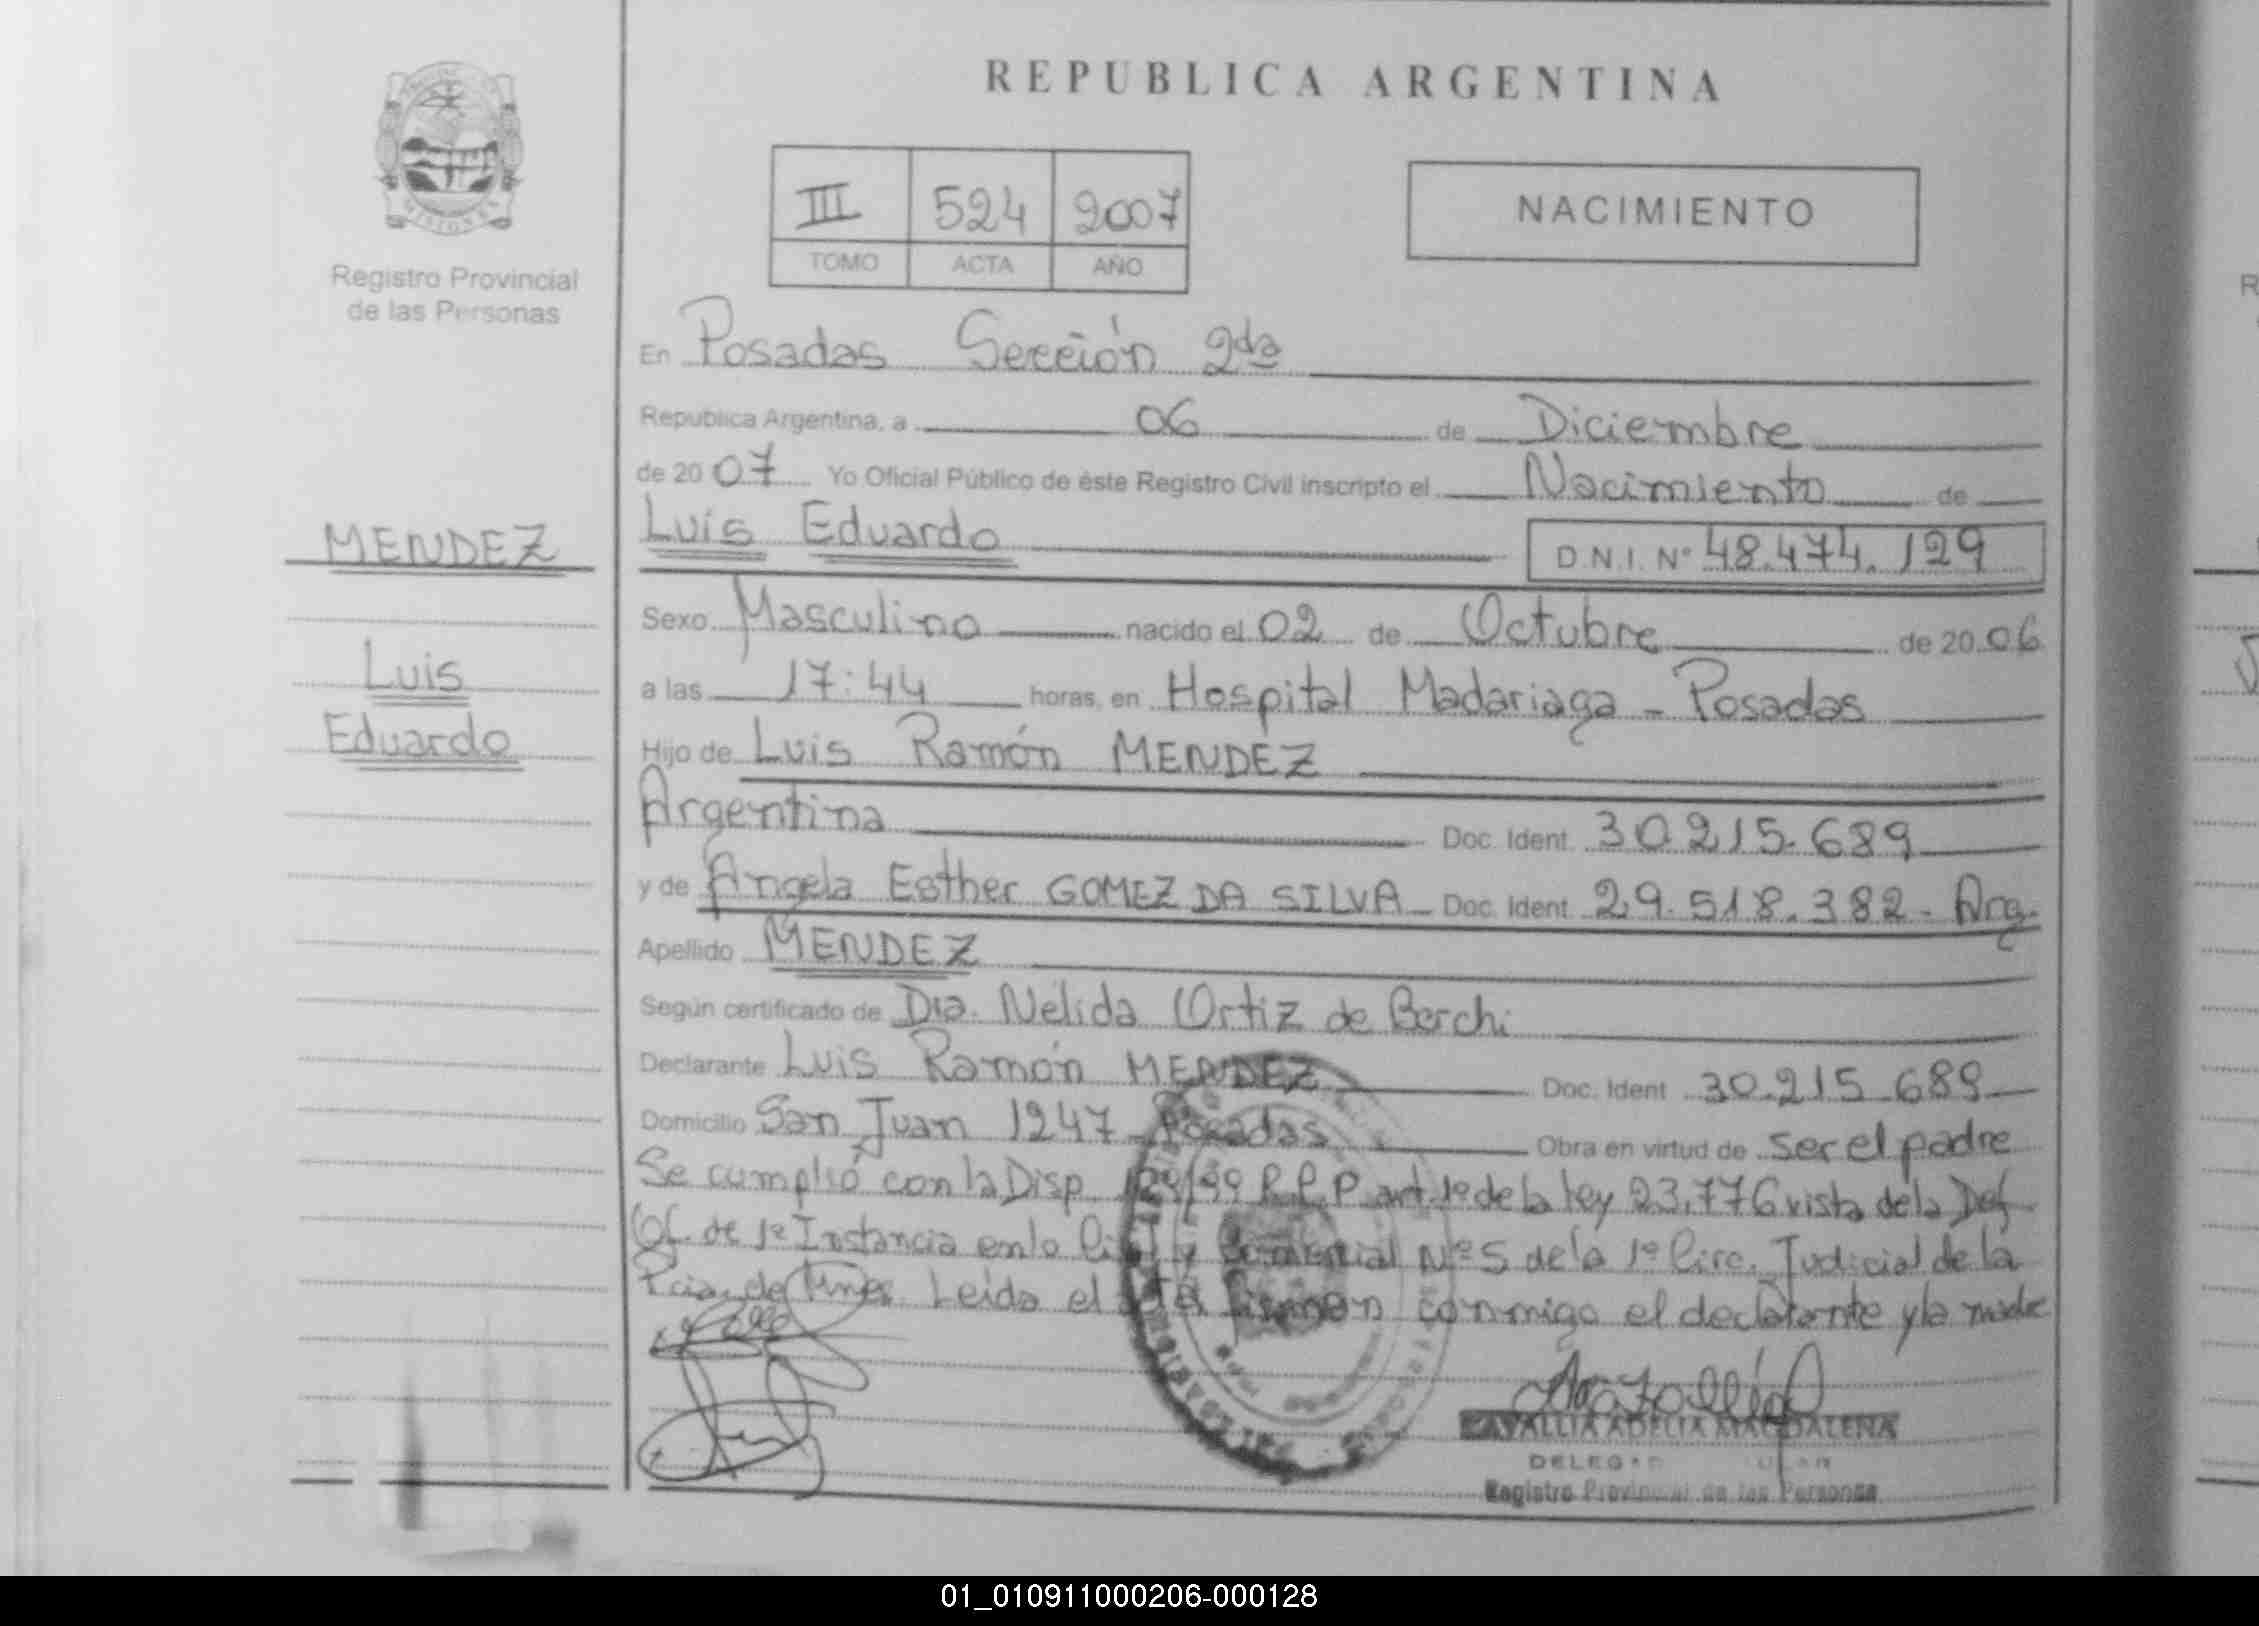 REPUBLICA ARGENTINA
MISIONES
Registro Provincial
de las Personas
III 524 2007
TOMO ACTA AÑO
NACIMIENTO
En Posadas Sección 2da
Republica Argentina, a 06 de Diciembre
de 2007 Yo Oficial Público de éste Registro Civil inscripto el Nacimiento de
MENDEZ
Luis Eduardo D.N.I. Nº 48.474.129
Sexo Masculino nacido el 02 de Octubre de 2006
Luis
a las 17:44 horas, en Hospital Madariaga - Posadas
Eduardo
Hijo de Luis Ramón MENDEZ
Argentina Doc. Ident. 30.215.689
y de Angela Esther GOMEZ DA SILVA - Doc. Ident. 29.518.382 - Arg.
Apellido MENDEZ
Según certificado de Dra. Nélida Ortiz de
Declarante Luis Ramón MENDEZ Doc. Ident 30.215.689
Domicilio San Juan 1247 Posadas Obra en virtud de ser el padre
Se cumplió con la Disp R.P.P art. 1º de la ley 23.776 vista de la Def
Of. de 1º Instancia en lo Civil y Comercial Nº 5 de la 1º Circ. Judicial de la
Pcia. de Mnes Leída el acta firman conmigo el declarante y la madre
ADELIA MAGDALENA
Registro Provincial de las Personas
01_010911000206-000128